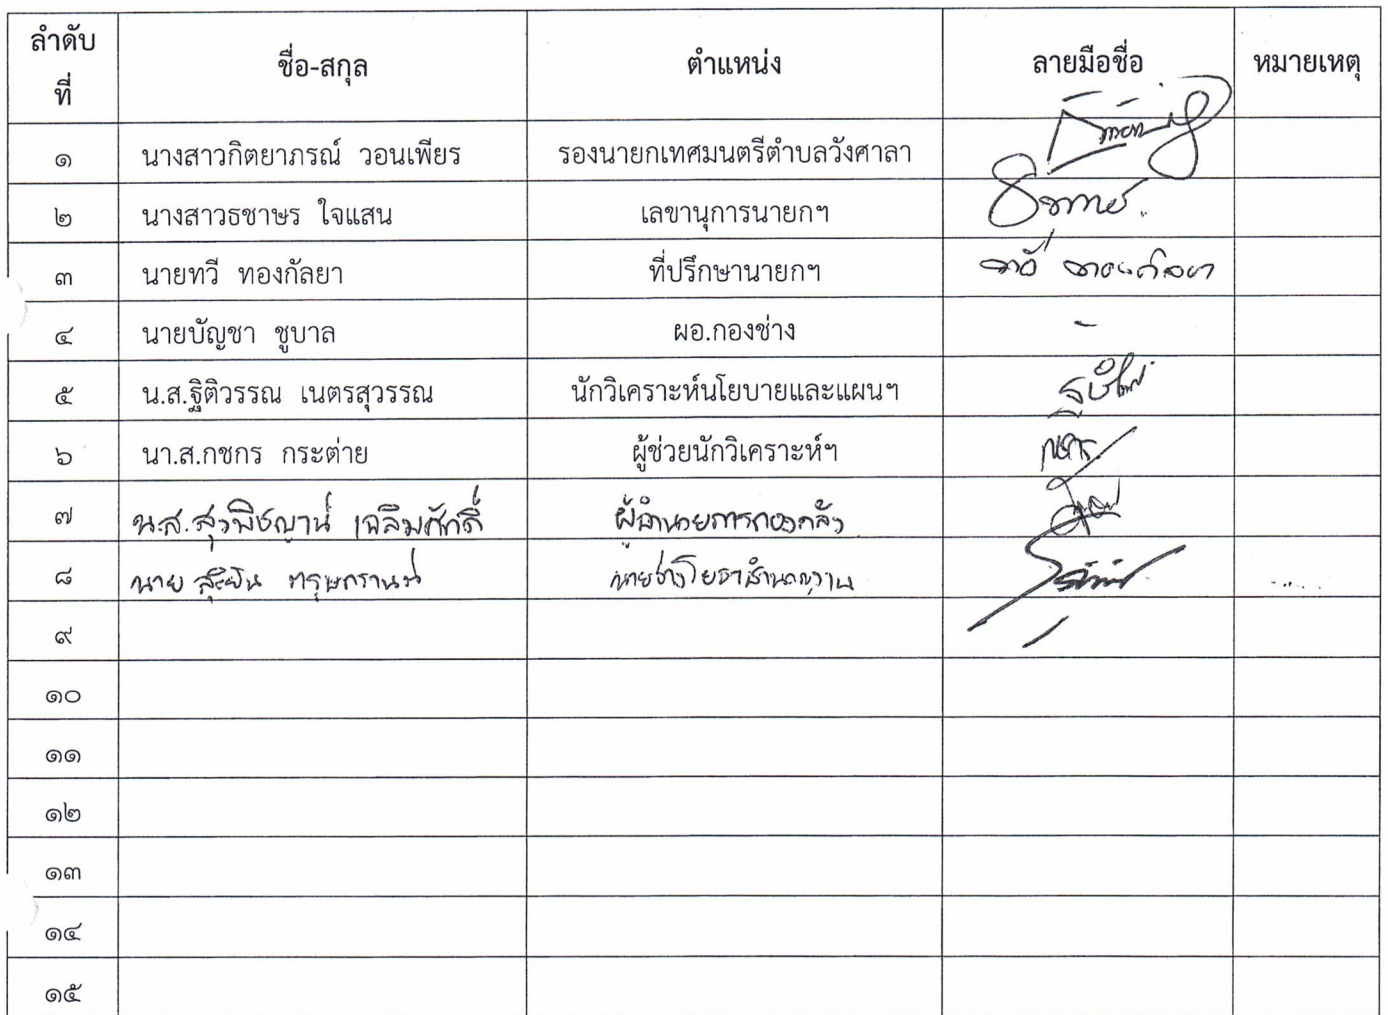 ลำดับ
ที่
ชื่อ-สกุล ตำแหน่ง ลายมือชื่อ หมายเหตุ
๑ นางสาวกิตยาภรณ์ วอนเพียร รองนายกเทศมนตรีตำบลวังศาลา
๒ นางสาวธชาษร ใจแสน เลขานุการนายกฯ
๓ นายทวี ทองกัลยา ที่ปรึกษานายกฯ ทวี ทองกัลยา
๔ นายบัญชา ชูบาล ผอ.กองช่าง -
๕ น.ส.ฐิติวรรณ เนตรสุวรรณ นักวิเคราะห์นโยบายและแผนฯ
๖ นา.ส.กชกร กระต่าย ผู้ช่วยนักวิเคราะห์ฯ
๗ น.ส.สุวพิชญาน์ เฉลิมศักดิ์ ผู้อำนวยการกองคลัง
๘ นาย นายช่างโยธาชำนาญงาน
๙
๑๐
๑๑
๑๒
๑๓
๑๔
๑๕